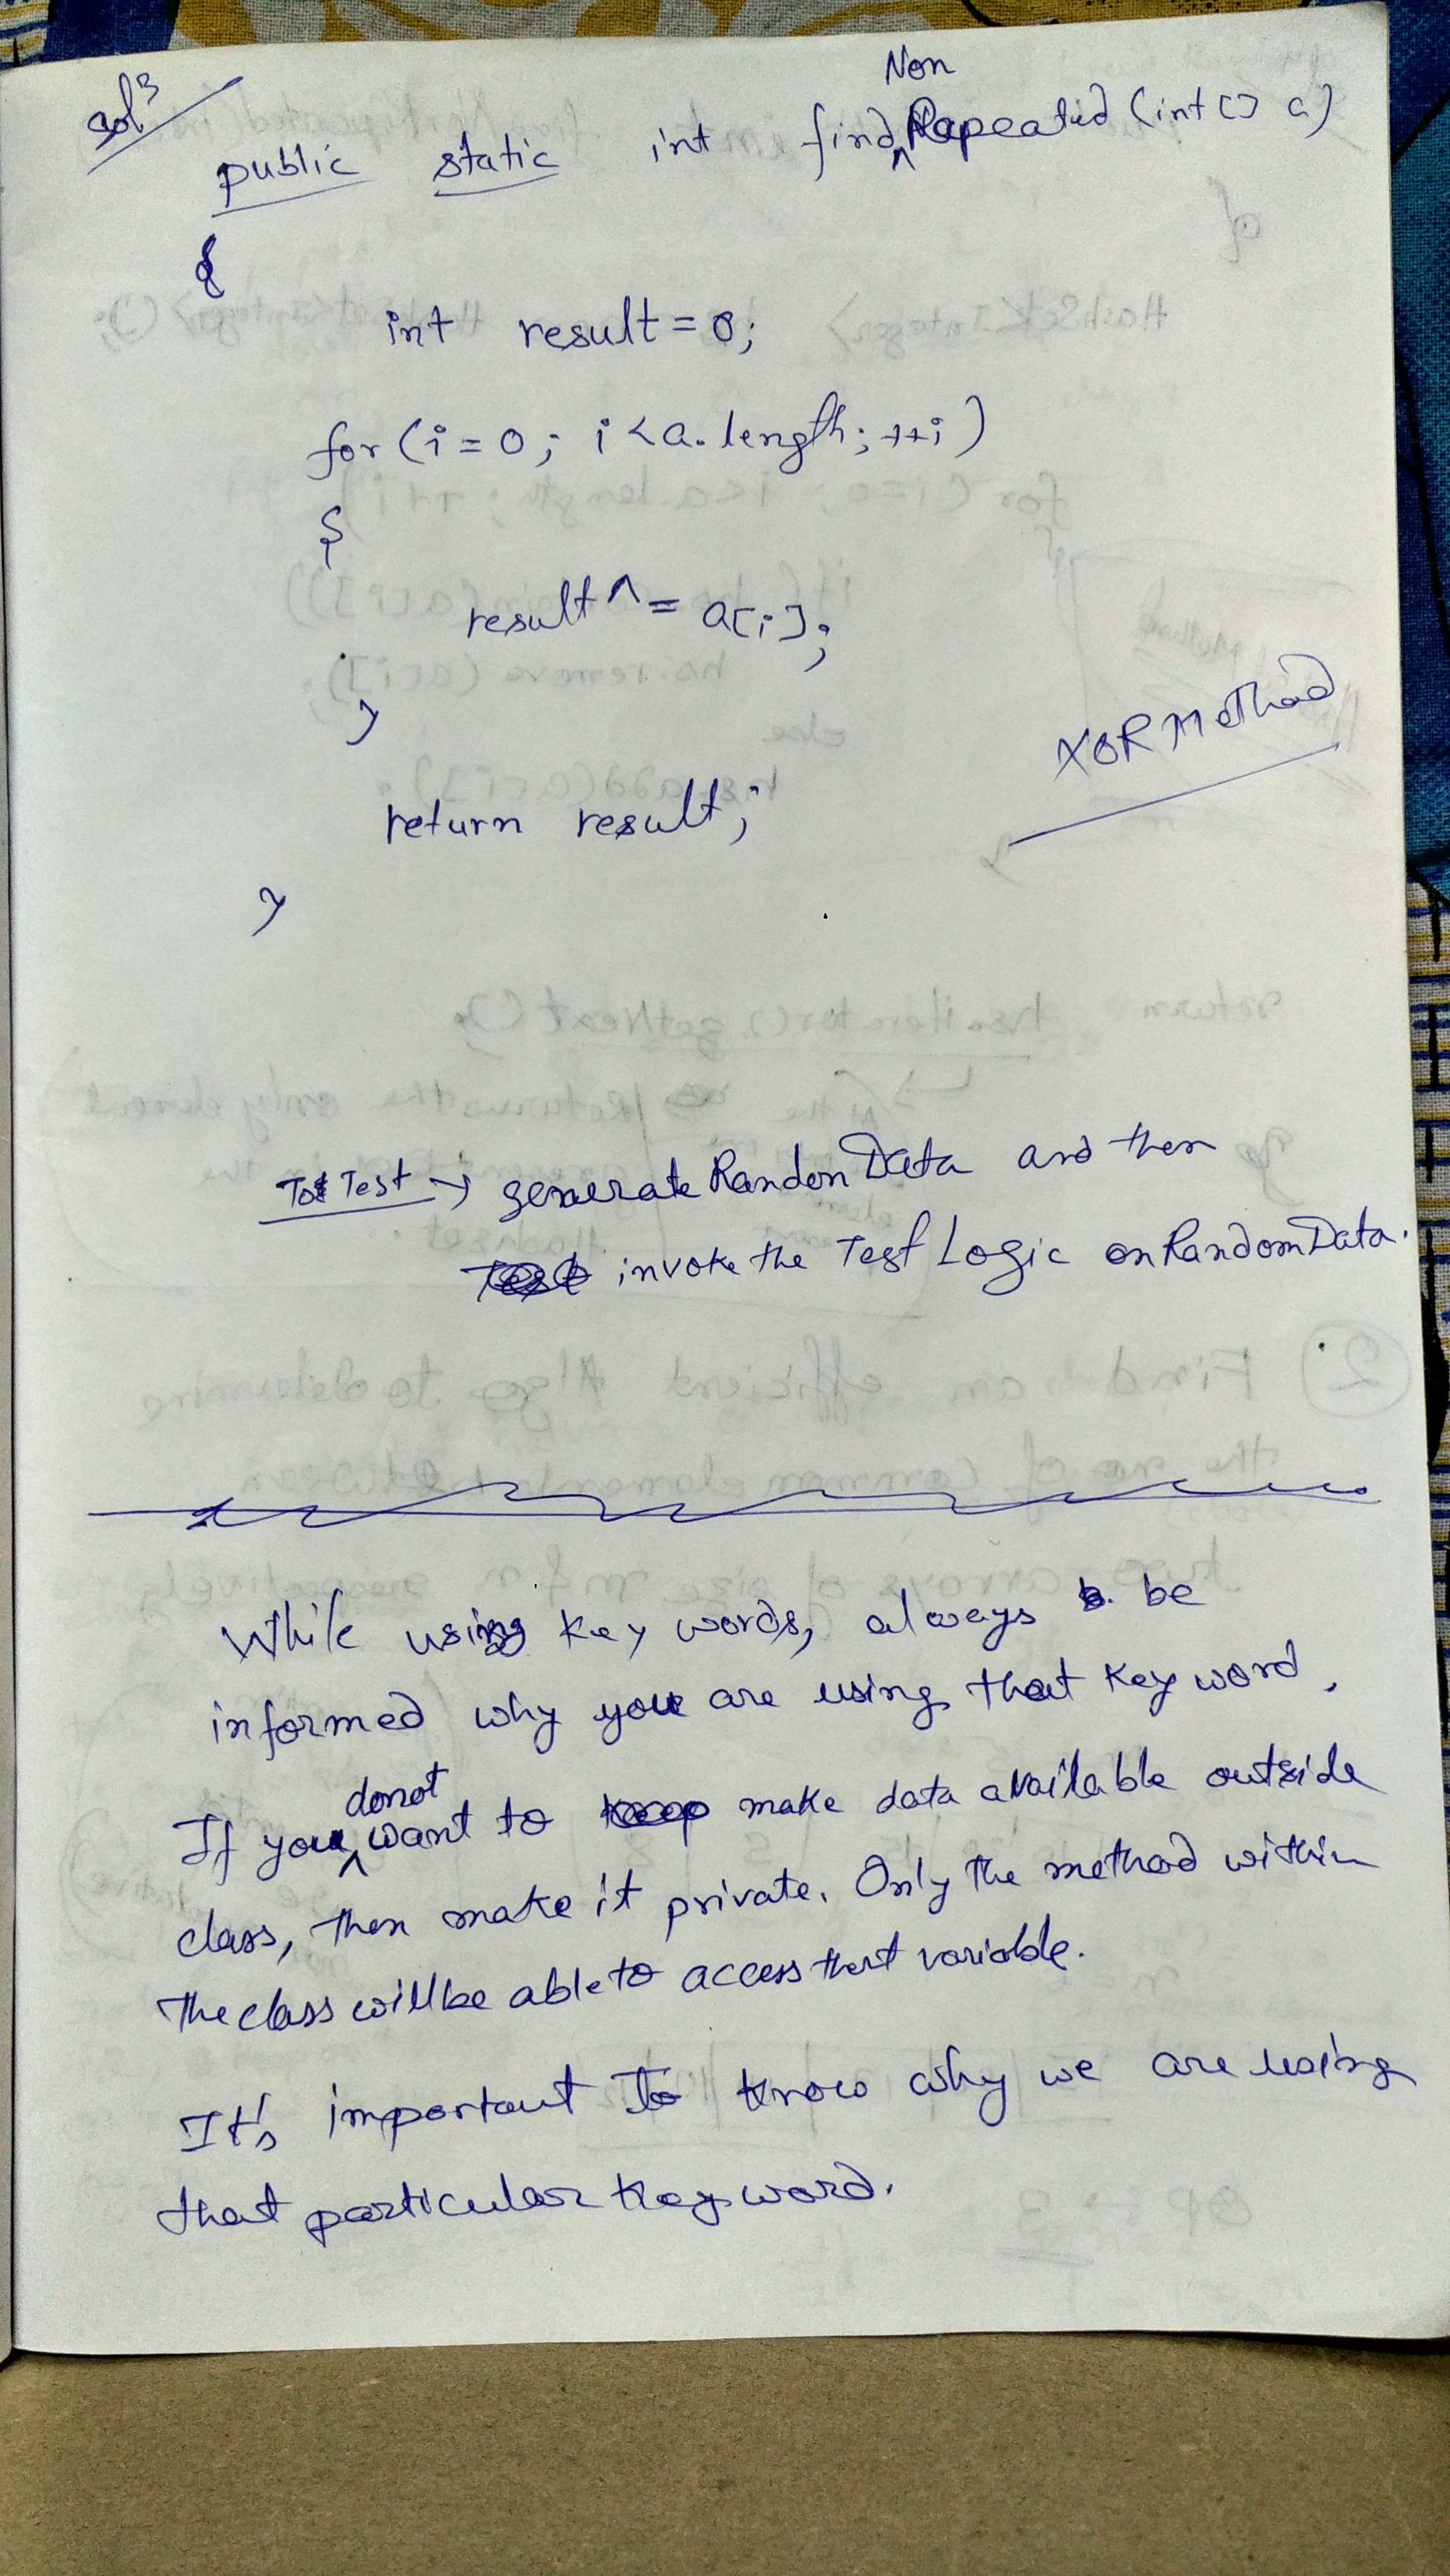 Sol^n
Non
public static int find^Repeated (int [] a)
{
int result = 0;
for (i = 0; i < a.length; ++i)
{
result ^= a[i];
}
XOR Method
return result;
}
To Test → generate RandonData and then
invoke the Test Logic on RandomData.
While using key words, always be
informed why you are using that key word.
donot
If you ^ want to make data available outside
class, then make it private. Only the method within
the class will be able to access that variable.
It's important to know why we are using
that particular key word.